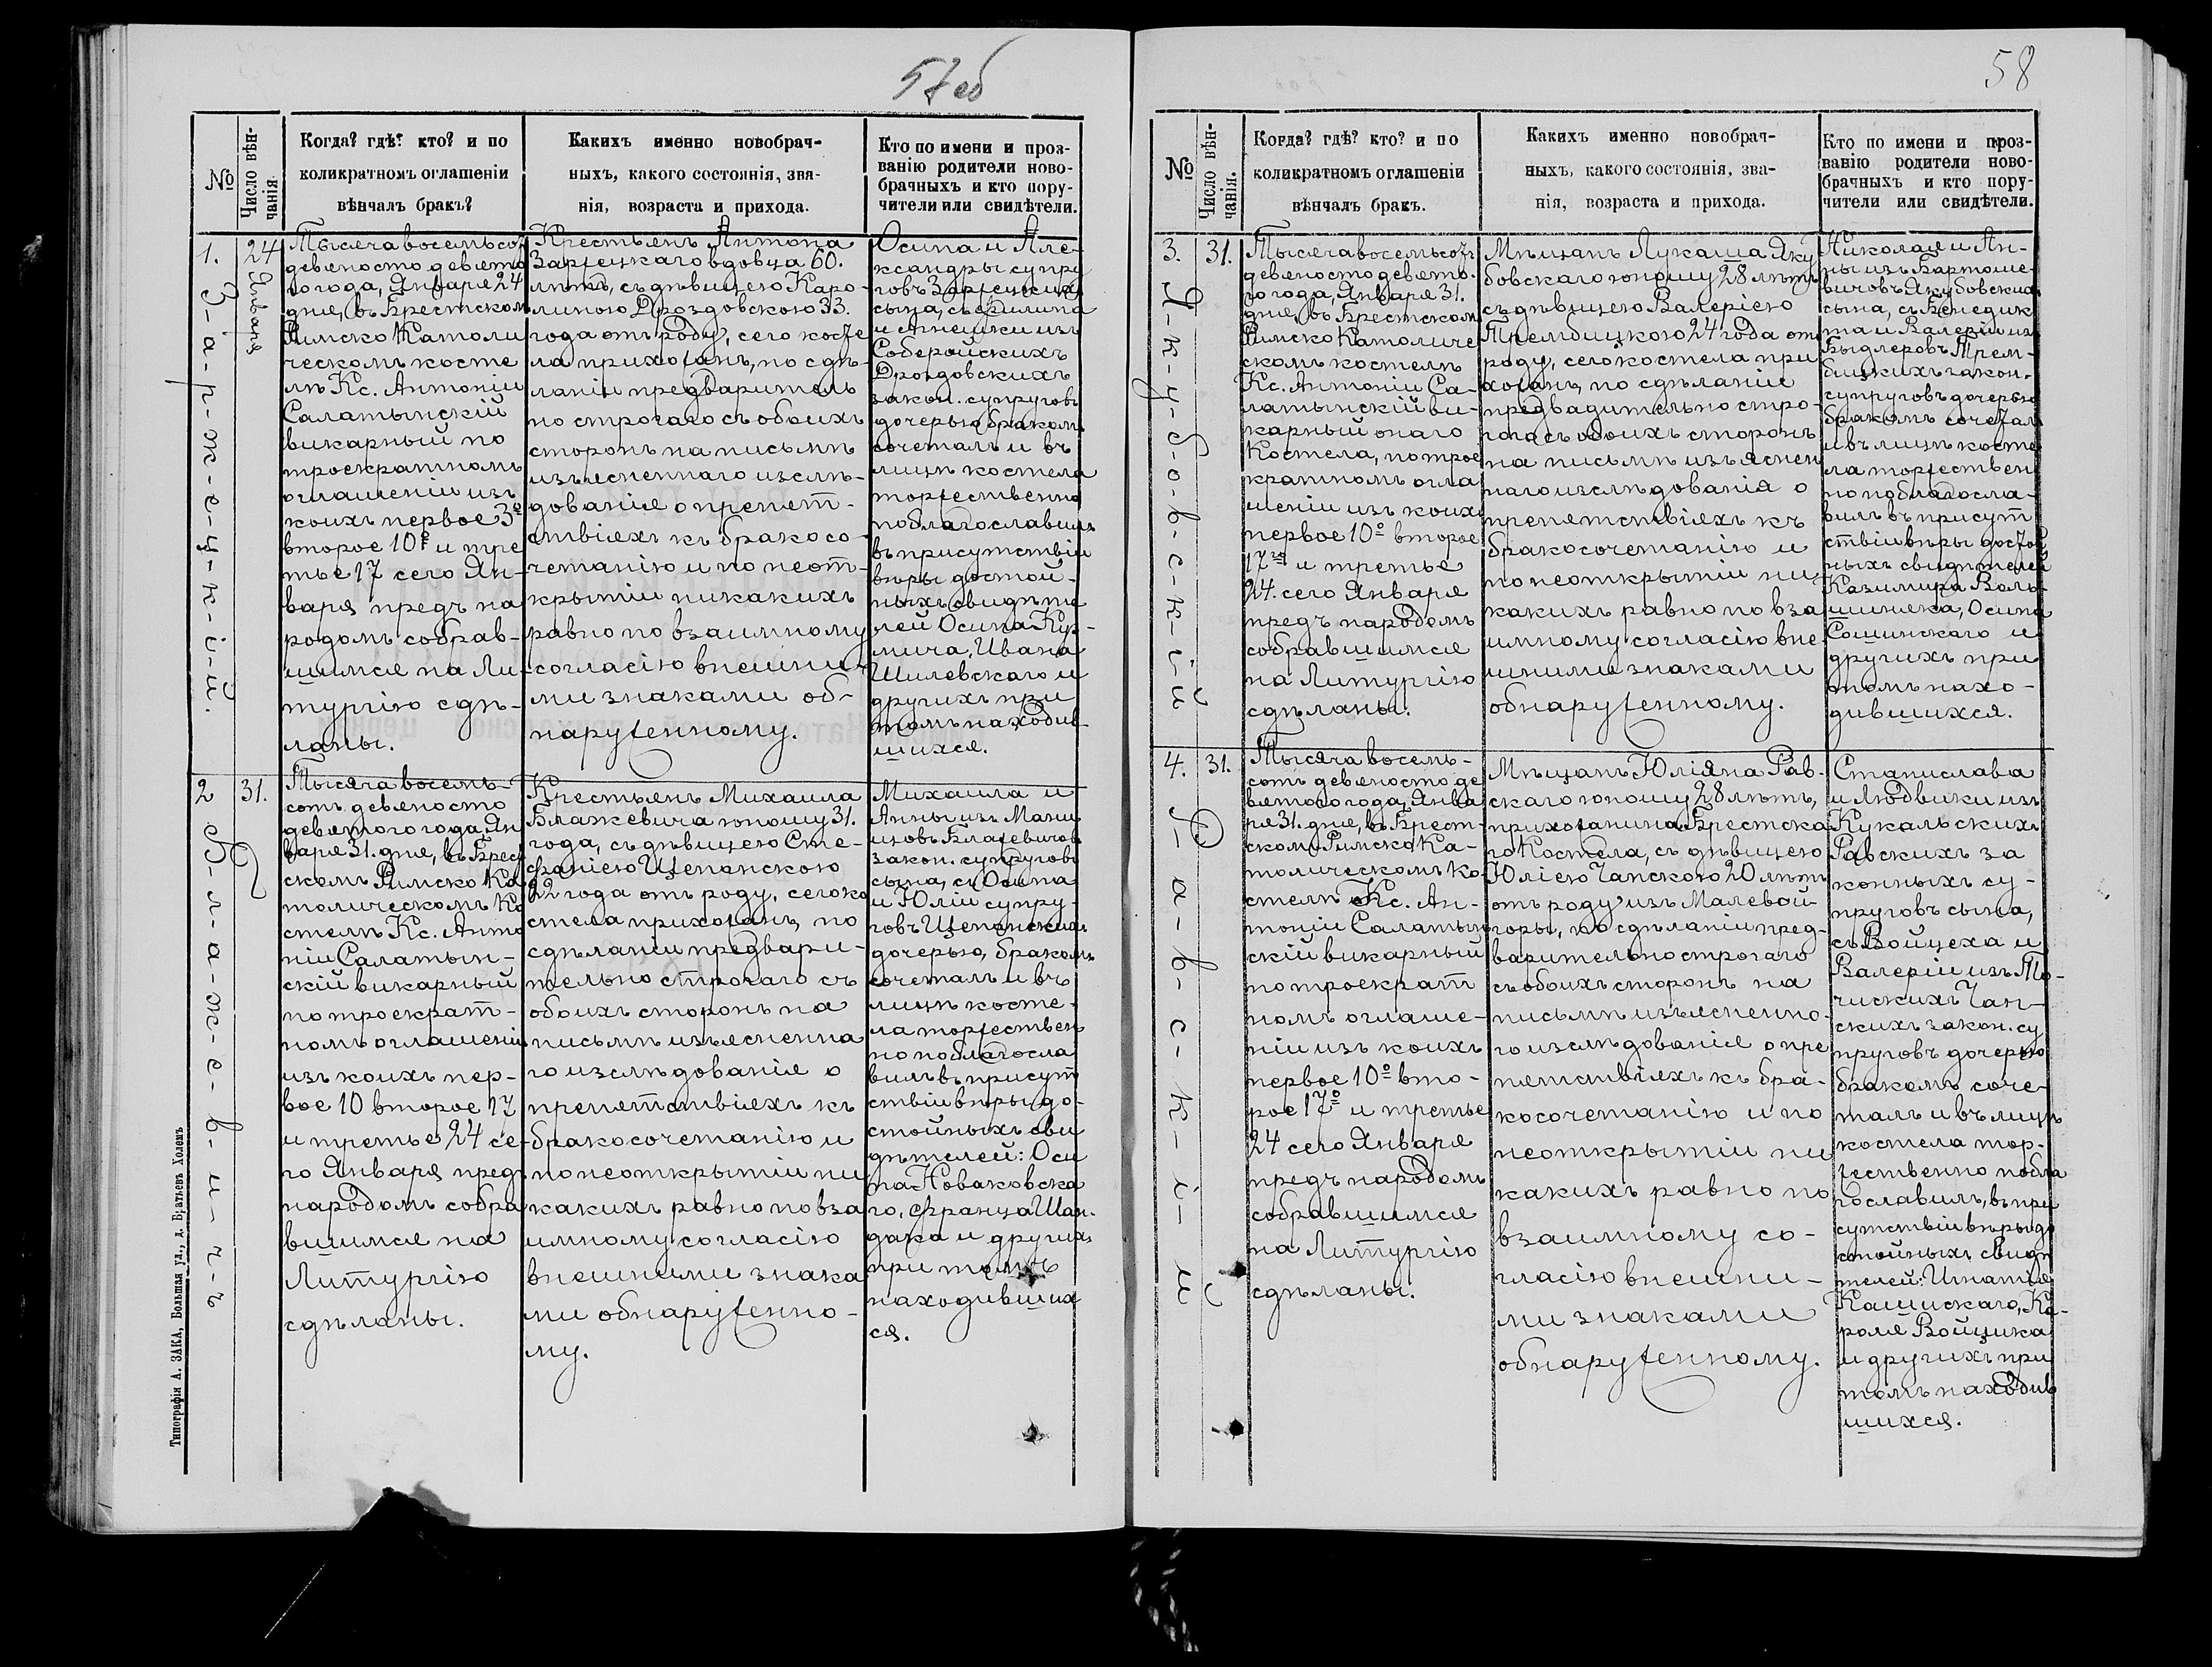 57 об
№
Число вѣн-
чанія.
Когда? гдѣ? кто? и по
коликратномъ оглашеніи
вѣнчалъ бракъ?
Какихъ именно новобрач-
ныхъ, какого состоянія, зва-
нія, возраста и прихода.
Кто по имени и проз-
ванію родители ново-
брачныхъ и кто пору-
чители или свидѣтели.
1.
З-а-р-ж-е-ц-к-і-й.
24
Января
Тысяча восемьсот
девяносто девято
го года, Января 24
дня, въ Брестском
Римско Католи
ческомъ косте
лѣ Кс. Антоніи
Салатынскій
викарный по
троекратномъ
оглашеніи изъ
коихъ первое 3º
второе 10º и тре
тье 17 сего Ян-
варя предъ на
родомъ собрав-
шимся на Ли-
тургію сдѣ-
ланы.
Крестьянъ Антона
Заржецкаго вдовца 60.
лѣтъ, съ дѣвицею Каро-
линою Дроздовскою 33.
года отъ роду, сего косте
ла прихожанъ, по сдѣ-
ланіи предваритель
но строгаго съ обоихъ
сторонъ на письмѣ
изъясненнаго изслѣ-
дованія о препят-
ствіяхъ къ бракосо-
четанію и по неот-
крытіи никакихъ
равно по взаимному
согласію внѣшни-
ми знаками об-
наруженному.
Осипа и Але-
ксандры супру
говъ Заржецких
сына, съ
и Агнешки изъ
Дроздовскихъ
закон. супруговъ
дочерью бракомъ
сочеталъ и въ
лицѣ костела
торжественно
поблагославилъ
въ присутствіи
вѣры достой-
ныхъ свидѣте
лей Осипа
Ивана
Шилевскаго и
другихъ при
томъ находив-
шихся.
2
Б-л-а-ж-е-в-и-ч-ъ
31.
Тысяча восемь-
сотъ девяносто
девятого года Ян
варя 31. дня, въ Брест
скомъ Римско Ка
толическомъ Ко
стелѣ Кс. Анто
ніи Салатын-
скій викарный
по троекрат-
номъ оглашеніи
изъ коихъ пер-
вое 10 второе 17
и третье 24 се-
го Января предъ
народомъ собра
вшимся на
Литургію
сдѣланы.
Крестьянъ Михаила
Блажевича юношу 31.
года, съ дѣвицею Сте-
фаніею Щепанскою
22 года отъ роду, сего ко
стела прихожанъ, по
сдѣланіи предвари-
тельно строгаго съ
обоихъ сторонъ на
письмѣ изъясненна
го изслѣдованія о
препятствіяхъ къ
бракосочетанію и
по неоткрытіи ни
какихъ равно по вза
имному согласію
внешними знака
ми обнаруженно-
му.
Михаила и
Анны изъ
Блажевичов
закон. супруговъ
сына, съ Осипа
и Юліи супру-
говъ Щепанских
дочерью, бракомъ
сочеталъ и въ
лицѣ косте-
ла торжествен
но поблагосла
вилъ въ присут
ствіи вѣры до-
стойныхъ сви
дѣтелей: Оси
па Новаковска
го, Франца Шан-
дака и другихъ
при томъ
находивших
ся.
Типографія А. ЗАКА, Большая ул., д. Братьевъ Холемъ
58
№
Число вѣн-
чанія.
Когда? гдѣ? кто? и по
коликратномъ оглашеніи
вѣнчалъ бракъ.
Какихъ именно новобрач-
ныхъ, какого состоянія, зва-
нія, возраста и прихода.
Кто по имени и проз-
ванію родители ново-
брачныхъ и кто пору-
чители или свидѣтели.
3.
Я-к-у-б-о-в-с-к-і-й
31.
Тысяча восемьсотъ
девяносто девято-
го года, Января 31.
дня, въ Брестском
Римско Католиче
скомъ костелѣ
Кс. Антоніи Са-
латынскій ви-
карный онаго
Костела, по трое
кратномъ огла
шеніи изъ коих
первое 10º второе
17го и третье
24. сего Января
предъ народомъ
собравшимся
на Литургію
сдѣланы.
Мѣщанъ Лукаша Яку
бовскаго юношу 28 лѣтъ
съ дѣвицею Валеріею
Трембицкого 24 года отъ
роду, сего костела при
хожанъ, по сдѣланіи
предвадительно стро-
гога съ обоихъ сторонъ
на письмѣ изъяснен
наго изслѣдованія о
препятствіяхъ къ
бракосочетанію и
по неоткрытіи ни
какихъ равно по вза
имному согласію вне
шними знаками
обнаруженному.
Николая и Ан-
ны изъ Бартоше-
вичовъ Якубовских
сына, съ Бенедик
та и Валеріи изъ
Трем-
бицкихъ закон.
супруговъ дочерью
бракомъ сочетал
и въ лицѣ косте
ла торжествен
но поблагосла-
вилъ въ присут
ствіи вѣры достой
ныхъ свидѣтелей
Казимира Воль-
шиняка, Осипа
Сошинскаго и
другихъ при
томъ нахо-
дившихся.
4.
Р-а-в-с-к-і-й
31.
Тысяча восемь-
сотъ девяносто де
вятого года, Янва
ря 31. дня, въ Брест-
скомъ Римско Ка-
толическомъ Ко
стелѣ Кс. Ан-
тоніи Салатын
скій викарный
по троекрат
номъ оглаше-
ніи изъ коихъ
первое 10º вто-
рое 17º и третье
24 сего Января
предъ народомъ
собравшимся
на Литургію
сдѣланы.
Мѣщанъ Юліяна Рав-
скаго юношу 28 лѣтъ,
прихожанина Брестска
го Костела, съ дѣвицею
Юліею Чапскою 20 лѣтъ
отъ роду изъ Малевой
горы, по сдѣланіи пред-
варительно строгаго
съ обоихъ сторонъ на
письмѣ изъясненно-
го изслѣдованія о пре
пятствіяхъ къ бра-
косочетанію и по
неоткрытіи ни
какихъ равно по
взаимному со-
гласію внешни-
ми знаками
обнаруженному.
Станислава
и Людвики изъ
Кукальскихъ
Равскихъ за
конныхъ су-
пруговъ сына,
съ Войцеха и
Валеріи изъ То-
чискихъ Чап-
скихъ закон. су
пруговъ дочерью
бракомъ соче-
талъ и въ лицѣ
костела тор-
жественно побла
гославилъ, въ при
сутствіи вѣры до
стойныхъ свидѣ
телей: Игнатія
Кашинскаго, Ка-
роля Войцика
и другихъ при
томъ находив
шихся.